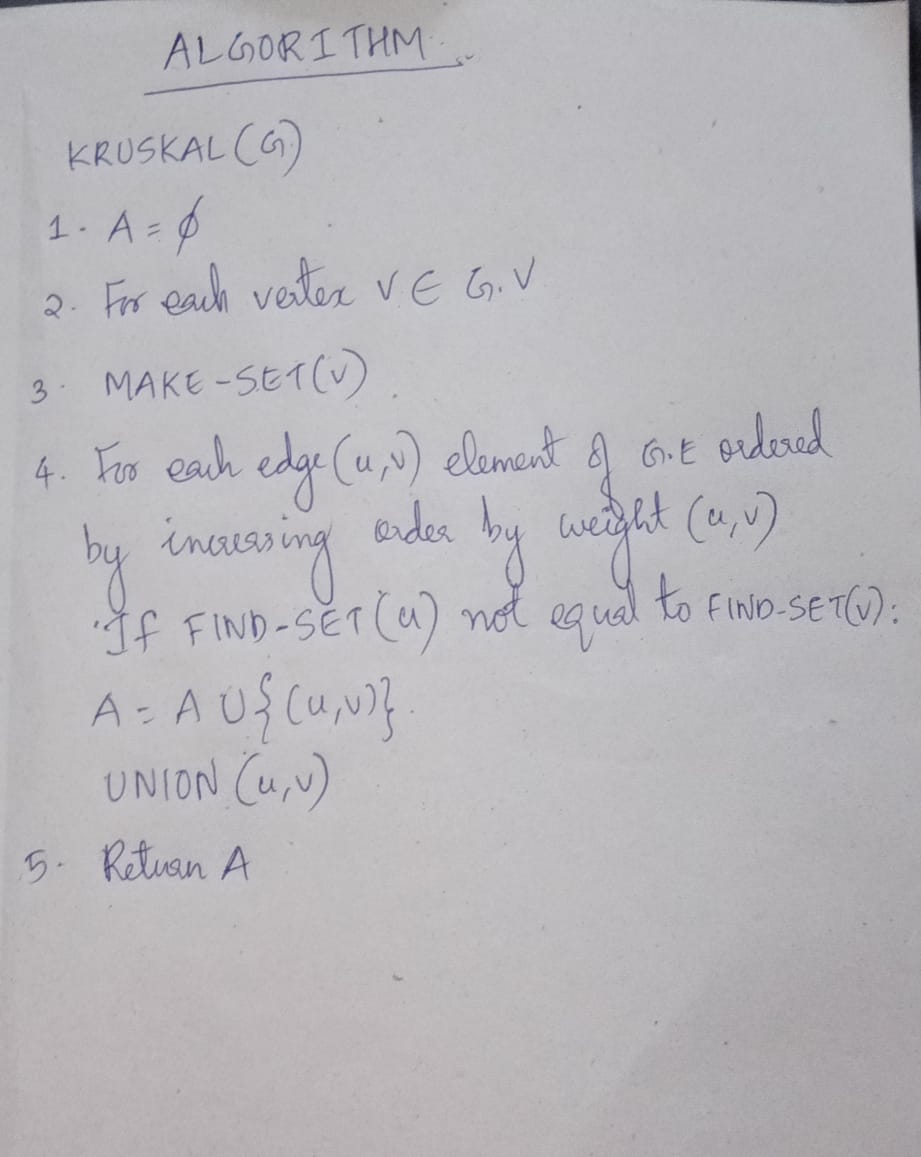 ALGORITHM
KRUSKAL(G)
1. A = ϕ
2. For each vertex v ∈ G.V
3. MAKE-SET(v)
4. For each edge (u,v) element of G.E ordered
by increasing order by weight (u,v)
If FIND-SET(u) not equal to FIND-SET(v):
A = A ∪ {(u,v)}
UNION (u,v)
5. Return A